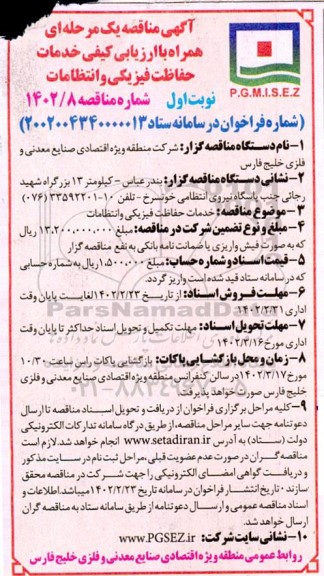 آگهی مناقصه یک مرحله ای
همراه با ارزیابی کیفی خدمات
حفاظت فیزیکی و انتظامات
P.G.M.I.S.E.Z
نوبت اول شماره مناقصه ۱۴۰۲/۸
(شماره فراخوان در سامانه ستاد ۲۰۰۲۰۰۴۳۴۰۰۰۰۰۱۳)
۱-نام دستگاه مناقصه گزار: شرکت منطقه ویژه اقتصادی صنایع معدنی و
فلزی خلیج فارس
۲-نشانی دستگاه مناقصه گزار: بندرعباس - کیلومتر ۱۳ بزرگراه شهید
رجائی جنب پاسگاه نیروی انتظامی خونسرخ - تلفن ۱۰-۳۳۵۹۲۲۰۱ (۰۷۶)
۳-موضوع مناقصه: خدمات حفاظت فیزیکی و انتظامات
۴-مبلغ و نوع تضمین شرکت در مناقصه: مبلغ ۱۳,۲۰۰,۰۰۰,۰۰۰ ریال
که به صورت فیش واریزی یا ضمانت نامه بانکی به نفع مناقصه گزار
۵-قیمت اسناد و شماره حساب: مبلغ ۱,۵۰۰,۰۰۰ ریال به شماره حسابی
که در سامانه ستاد قید شده است واریز گردد.
۶-مهلت فروش اسناد: از تاریخ ۱۴۰۲/۲/۲۳ لغایت پایان وقت
اداری ۱۴۰۲/۲/۳۱
۷-مهلت تحویل اسناد: مهلت تکمیل و تحویل اسناد حداکثر تا پایان وقت
اداری مورخ ۱۴۰۲/۳/۱۶
۸-زمان و محل بازگشایی پاکات: بازگشایی پاکات راس ساعت ۱۰/۳۰
مورخ ۱۴۰۲/۳/۱۷ در سالن کنفرانس منطقه ویژه اقتصادی صنایع معدنی و فلزی
خلیج فارس صورت خواهد پذیرفت
۹-کلیه مراحل برگزاری فراخوان از دریافت و تحویل اسناد مناقصه تا ارسال
دعوتنامه جهت سایر مراحل مناقصه، از طریق درگاه سامانه تدارکات الکترونیکی
دولت (ستاد) به آدرس www.setadiran.ir انجام خواهد شد. لازم است
مناقصه گران در صورت عدم عضویت قبلی مراحل ثبت نام در سایت مذکور
و دریافت گواهی امضای الکترونیکی را جهت شرکت در مناقصه محقق
سازند - تاریخ انتشار فراخوان در سامانه تاریخ ۱۴۰۲/۲/۲۳ میباشد. اطلاعات و
اسناد مناقصه عمومی و ارسال دعوتنامه از طریق سامانه ستاد به مناقصه گران
ارسال خواهد شد.
۱۰-نشانی سایت شرکت: www.PGSEZ.ir
روابط عمومی منطقه ویژه اقتصادی صنایع معدنی و فلزی خلیج فارس